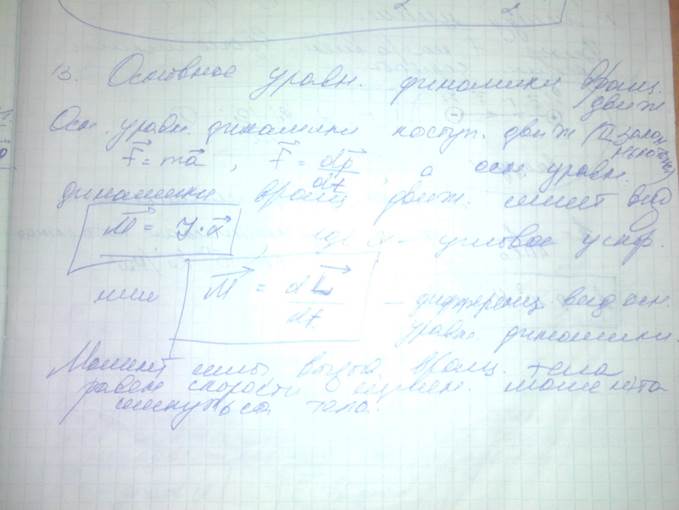 13. Основное уравн. динамики вращ.
движ
Осн. уравн. динамики поступ. движ (II закон
Ньютона)
F = ma , F = dp/dt , а осн. уравн.
динамики вращ движ. имеет вид
M = J·α , где α - угловое ускор.
или M = dL/dt - дифференц вид осн.
уравн. динамики.
Момент силы, вращ. тела
равен скорости измен. момента
импульса тела.